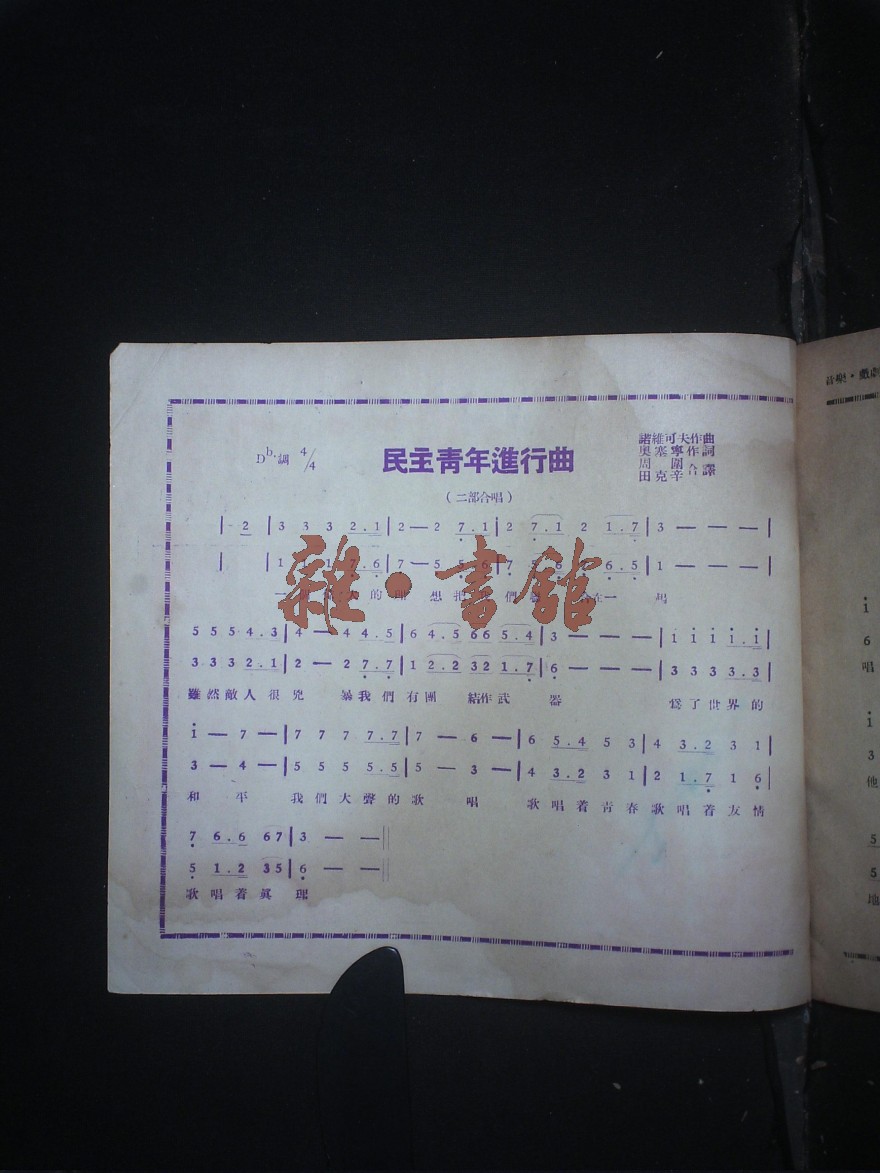 諾維可夫作曲
奧塞寧作詞
周圍
田克辛合譯
D♭調 4/4
民主青年進行曲
(二部合唱)
| 2 | 3 3 3 2.1 | 2 — 2 7.1 | 2 7.1 2 1.7 | 3 — — — |
7.6 | 7 — 5 6.5 | 1 — — — |
的 想 們 在一 起
雜·書館
5 5 5 4.3 | 4 — 4 4.5 | 6 4.5 66 5.4 | 3 — — — | i i i i.i |
3 3 3 2.1 | 2 — 2 7.7 | 1 2.2 32 1.7 | 6 — — — | 3 3 3 3.3 |
雖然敵人很兇 暴我們有團 結作武 器 爲了世界的
i — 7 — | 7 7 7 7.7 | 7 — 6 — | 6 5.4 5 3 | 4 3.2 3 1 |
3 — 4 — | 5 5 5 5.5 | 5 — 3 — | 4 3.2 3 1 | 2 1.7 1 6 |
和 平 我們大聲的歌 唱 歌唱着青春歌唱着友情
7 6.6 67 | 3 — — ||
5 1.2 35 | 6 — — ||
歌唱着眞 理
音樂·戲劇
i
6
唱
i
3
他
5
5
地